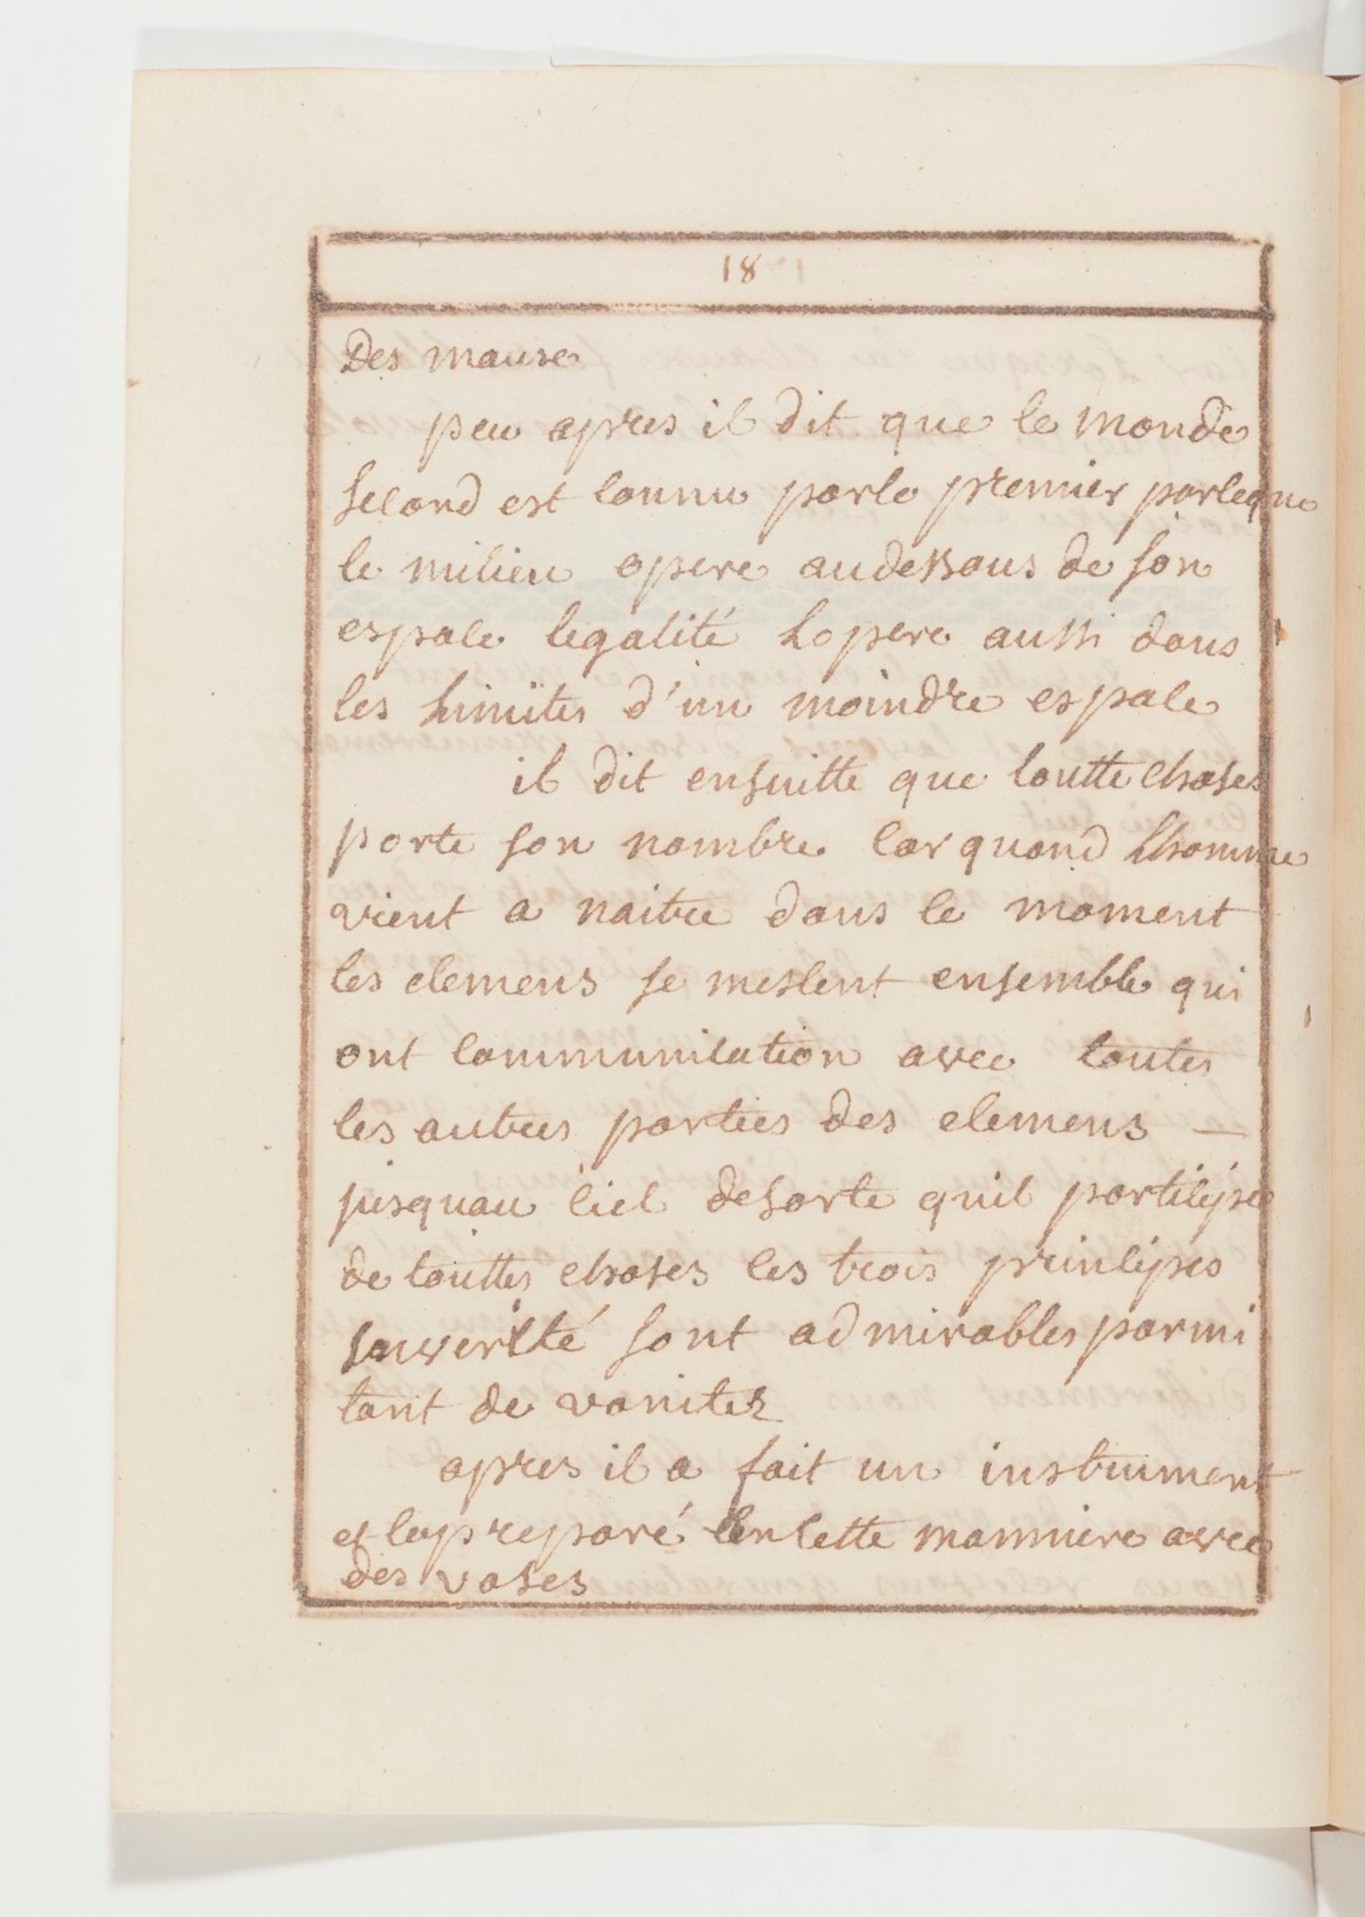 18
Des mause
peu apres il dit que le monde
second est connu parle premier parceque
le milieu opere audessous de son
espace legalité Lopere aussi dans
les Limites d'un moindre espace
il dit ensuitte que toutte choses
porte son nombre car quand Lhomme
vient a naitre dans le moment
les elemens se meslent ensemble qui
ont communication avec toutes
les autres parties des elemens —
jusquau ciel desorte quil participe
de touttes choses les trois principes
sont admirables parmi
tant de vanitez
apres il a fait un instrument
et lapreparé en cette manniere avec
des vases